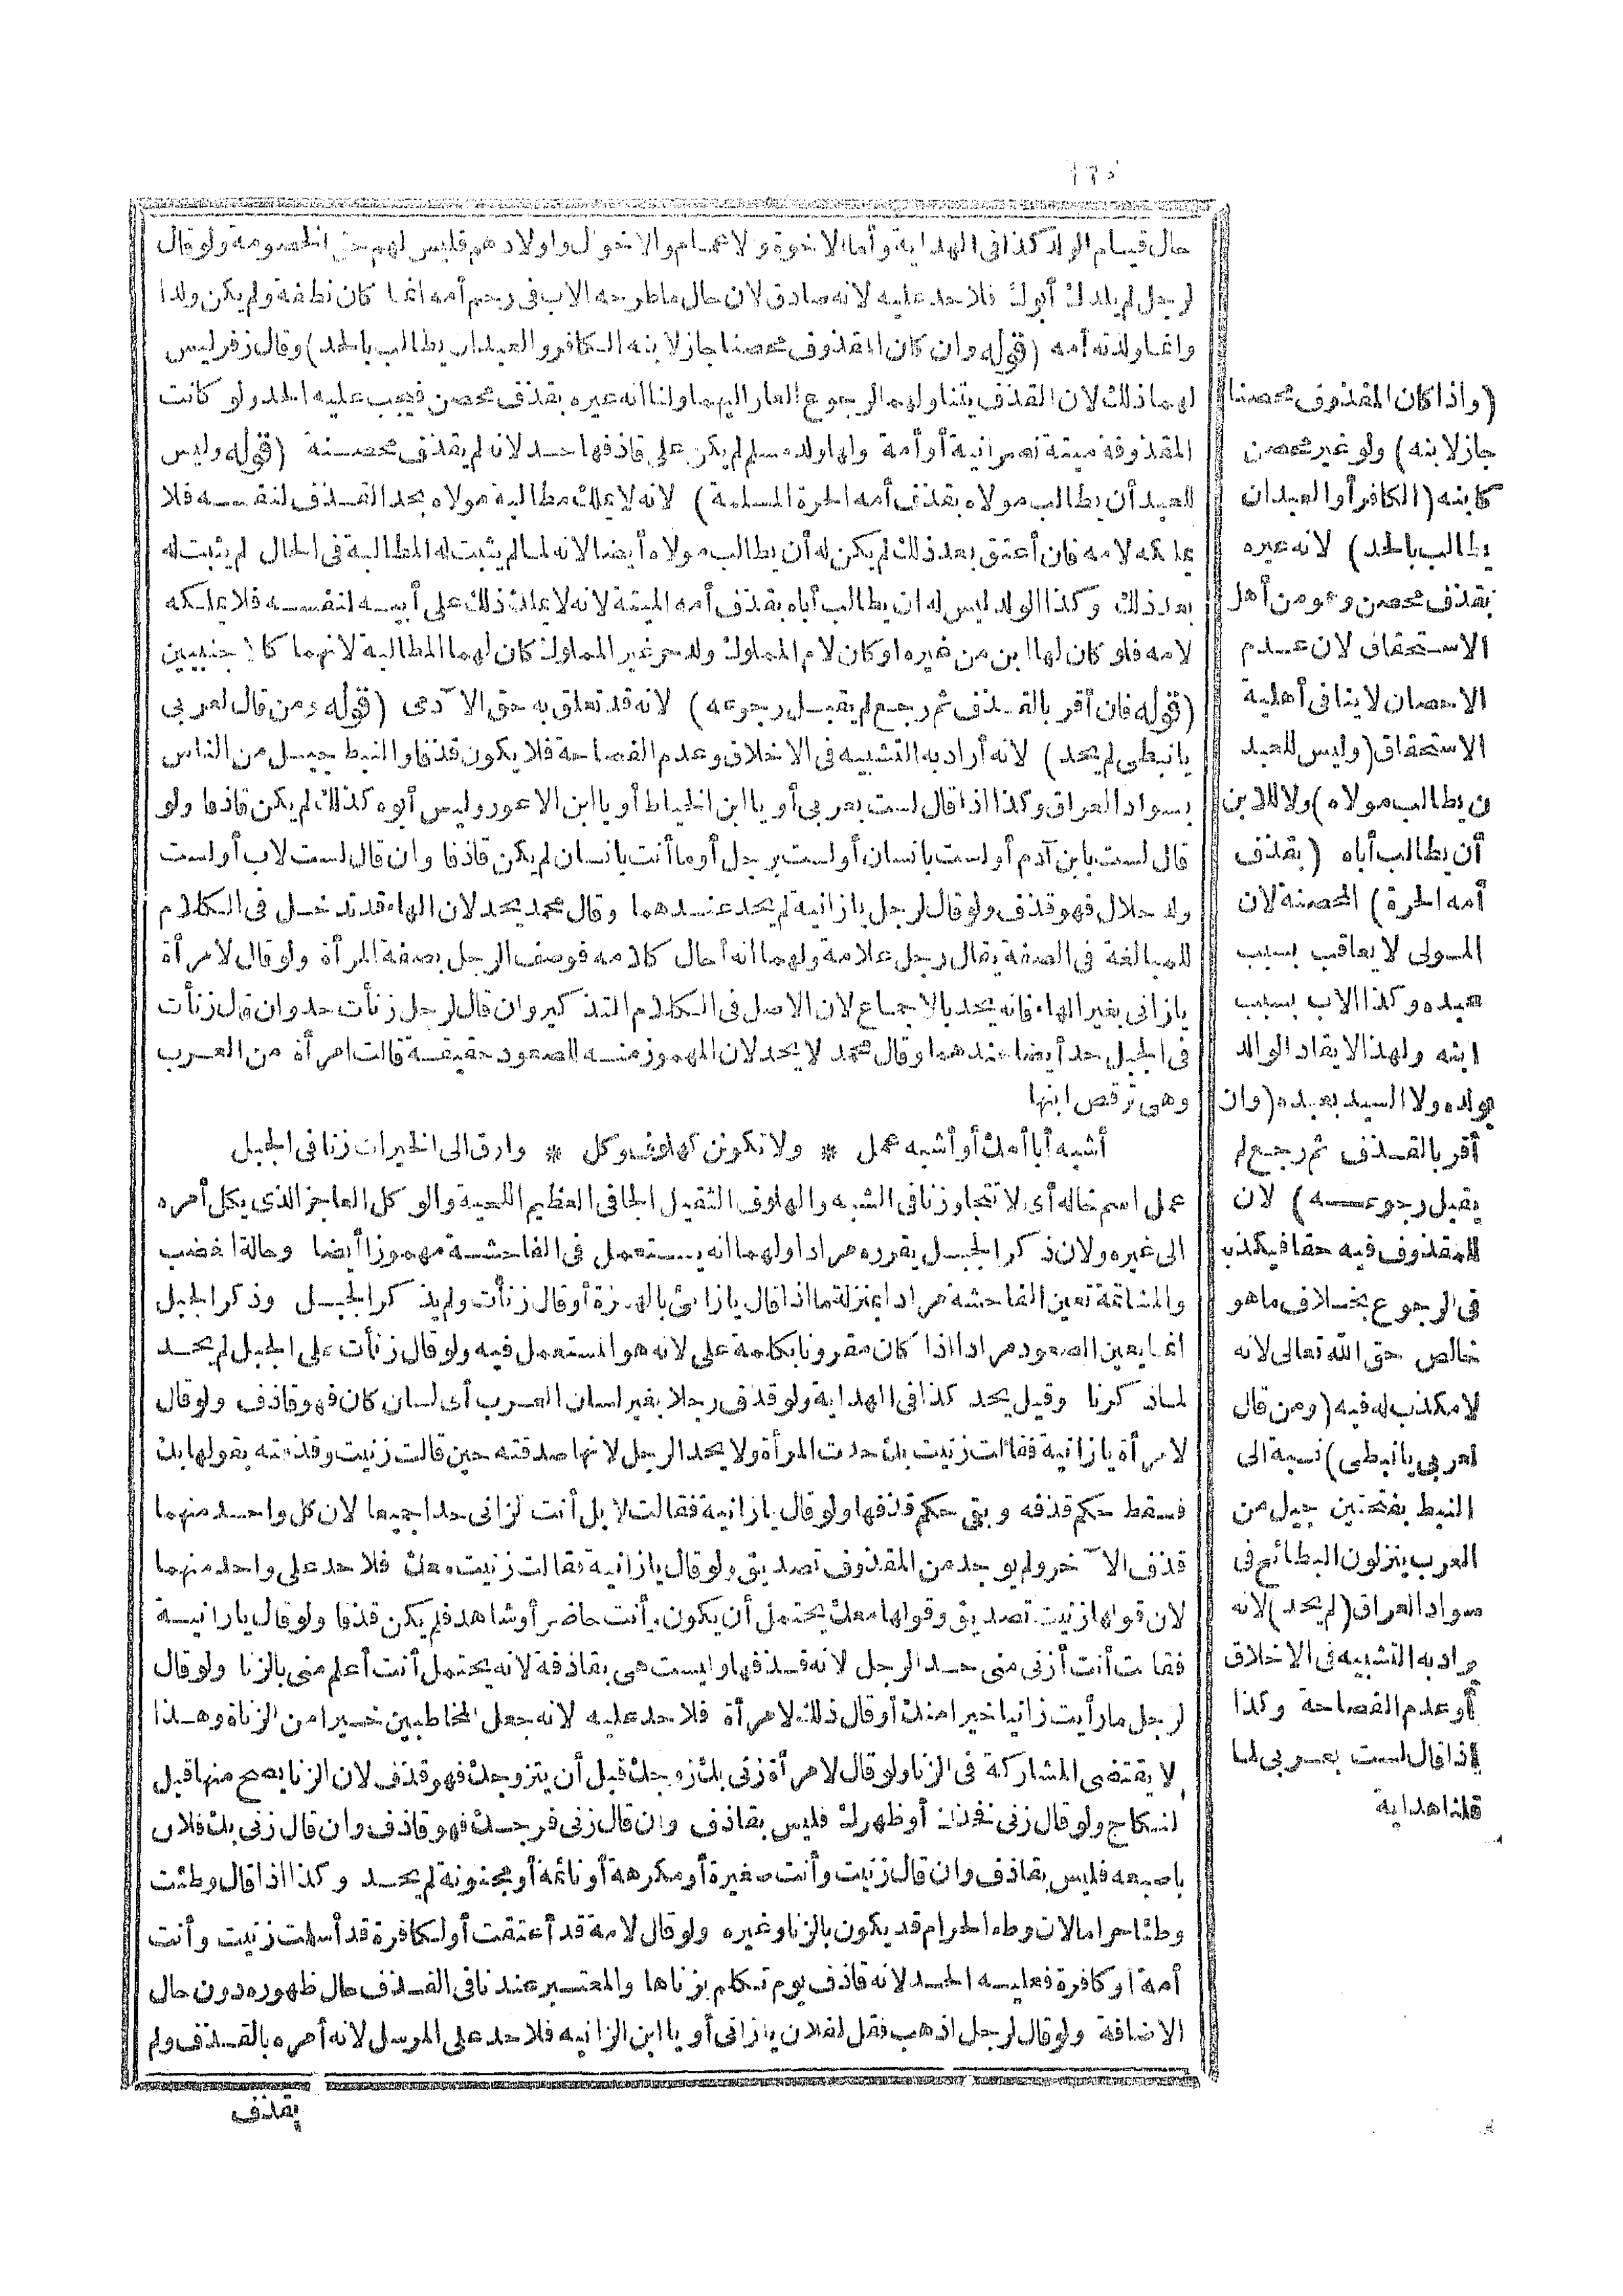 حال قيام الولد كذا في الهداية وأما الاخوة والاعمام والاخوال واولادهم فليس لهم حق الخصومة ولو قال
لرجل لم يلدك أبوك فلا حد عليه لانه صادق لان حال ما طرحه الاب في رحم أمه انما كان نطفة ولم يكن ولدا
وانما ولدته أمه (قوله وان كان المقذوف محصنا جاز لابنه الكافر والعبد ان يطالب بالحد) وقال زفر ليس
لهما ذلك لان القذف يتناولهما لرجوع العار اليهما ولنا انه عيره بقذف محصن فيجب عليه الحد ولو كانت
المقذوفة ميتة نصرانية أو أمة ولها ولد مسلم لم يكن على قاذفها حد لانه لم يقذف محصنة (قوله وليس
للعبد أن يطالب مولاه بقذف أمه الحرة المسلمة) لانه لا يملك مطالبة مولاه بحد القذف لنفسه فلا
يملكه لامه فان أعتق بعد ذلك لم يكن له أن يطالب مولاه أيضا لانه لما لم يثبت له المطالبة في الحال لم يثبت له
بعد ذلك وكذا الولد ليس له ان يطالب أباه بقذف أمه الميتة لانه لا يملك ذلك على أبيه لنفسه فلا يملكه
لامه فلو كان لها ابن من غيره او كان لام المملوك ولد حر غير المملوك كان لهما المطالبة لانهما كالاجنبيين
(قوله فان أقر بالقذف ثم رجع لم يقبل رجوعه) لانه قد تعلق به حق الآدمى (قوله ومن قال لعربي
يا نبطى لم يحد) لانه أراد به التشبيه في الاخلاق وعدم الفصاحة فلا يكون قذفا والنبط جيل من الناس
بسواد العراق وكذا اذا قال لست بعربي أو يا ابن الخياط أو يا ابن الاعور وليس أبوه كذلك لم يكن قاذفا ولو
قال لست بابن آدم أو لست بانسان أو لست برجل أو ما أنت بانسان لم يكن قاذفا وان قال لست لاب أو لست
ولد حلال فهو قذف ولو قال لرجل يا زانية لم يحد عندهما وقال محمد يحد لان الهاء قد تدخل في الكلام
للمبالغة في الصفة يقال رجل علامة ولهما انه أحال كلامه فوصف الرجل بصفة المرأة ولو قال لامرأة
يا زانى بغير الهاء فانه يحد بالاجماع لان الاصل في الكلام التذكير وان قال لرجل زنأت حد وان قال زنأت
في الجبل حد أيضا عندهما وقال محمد لا يحد لان المهموز منه للصعود حقيقة قالت امرأة من العرب
وهى ترقص ابنها
أشبه أبا أمك أو أشبه عمل * ولا تكونن كهلوف وكل * وارق الى الخيرات زنا في الجبل
عمل اسم خاله أى لا تتجاوزنا في الشبه والهلوف الثقيل الجافى العظيم اللحية والوكل العاجز الذى يكل أمره
الى غيره ولان ذكر الجبل يقرره مرادا ولهما انه يستعمل في الفاحشة مهموزا أيضا وحالة الغضب
والمشاتمة تعين الفاحشة مرادا بمنزلة ما اذا قال يا زانئ بالهمزة أو قال زنأت ولم يذكر الجبل وذكر الجبل
انما يعين الصعود مرادا اذا كان مقرونا بكلمة على لانه هو المستعمل فيه ولو قال زنأت على الجبل لم يحد
لما ذكرنا وقيل يحد كذا في الهداية ولو قذف رجلا بغير لسان العرب أى لسان كان فهو قاذف ولو قال
لامرأة يا زانية فقالت زنيت بك حدت المرأة ولا يحد الرجل لانها صدقته حين قالت زنيت وقذفته بقولها بك
فسقط حكم قذفه وبقى حكم قذفها ولو قال يا زانية فقالت لا بل أنت الزانى حدا جميعا لان كل واحد منهما
قذف الآخر ولم يوجد من المقذوف تصديق ولو قال يا زانية فقالت زنيت معك فلا حد على واحد منهما
لان قولها زنيت تصديق وقولها معك يحتمل أن يكون وأنت حاضر أو شاهد فلم يكن قذفا ولو قال يا زانية
فقالت أنت أزنى منى حد الرجل لانه قذفها وليست هى بقاذفة لانه يحتمل أنت أعلم منى بالزنا ولو قال
لرجل ما رأيت زانيا خيرا منك أو قال ذلك لامرأة فلا حد عليه لانه جعل المخاطبين خيرا من الزناة وهذا
لا يقتضى المشاركة في الزنا ولو قال لامرأة زنى بك زوجك قبل أن يتزوجك فهو قذف لان الزنا يصح منها قبل
النكاح ولو قال زنى فخذك أو ظهرك فليس بقاذف وان قال زنى فرجك فهو قاذف وان قال زنى بك فلان
باصبعه فليس بقاذف وان قال زنيت وأنت صغيرة أو مكرهة أو نائمة أو مجنونة لم يحد وكذا اذا قال وطئت
وطئا حراما لان وطء الحرام قد يكون بالزنا وغيره ولو قال لامة قد أعتقت أو لكافرة قد أسلمت زنيت وأنت
أمة او كافرة فعليه الحد لانه قاذف يوم تكلم بزناها والمعتبر عندنا في القذف حال ظهوره دون حال
الاضافة ولو قال لرجل اذهب فقل لفلان يا زانى أو يا ابن الزانيه فلا حد على المرسل لانه أمره بالقذف ولم
يقذف
(واذا كان المقذوف محصنا
جاز لابنه) ولو غير محصن
كابنه (الكافر أو العبد ان
يطالب بالحد) لانه عيره
بقذف محصن وهو من أهل
الاستحقاق لان عدم
الاحصان لا ينافى أهلية
الاستحقاق (وليس للعبد
ن يطالب مولاه) ولا للابن
أن يطالب أباه (بقذف
أمه الحرة) المحصنة لان
المولى لا يعاقب بسبب
عبده وكذا الاب بسبب
ابنه ولهذا لا يقاد الوالد
بولده ولا السيد بعبده (وان
أقر بالقذف ثم رجع لم
يقبل رجوعه) لان
للمقذوف فيه حقا فيكذبه
في الرجوع بخلاف ما هو
خالص حق الله تعالى لانه
لا مكذب له فيه (ومن قال
لعربي يا نبطى) نسبة الى
النبط بفتحتين جيل من
العرب ينزلون البطائح في
سواد العراق (لم يحد) لانه
يراد به التشبيه في الاخلاق
أو عدم الفصاحة وكذا
إذا قال لست بعربي لما
قلنا هداية